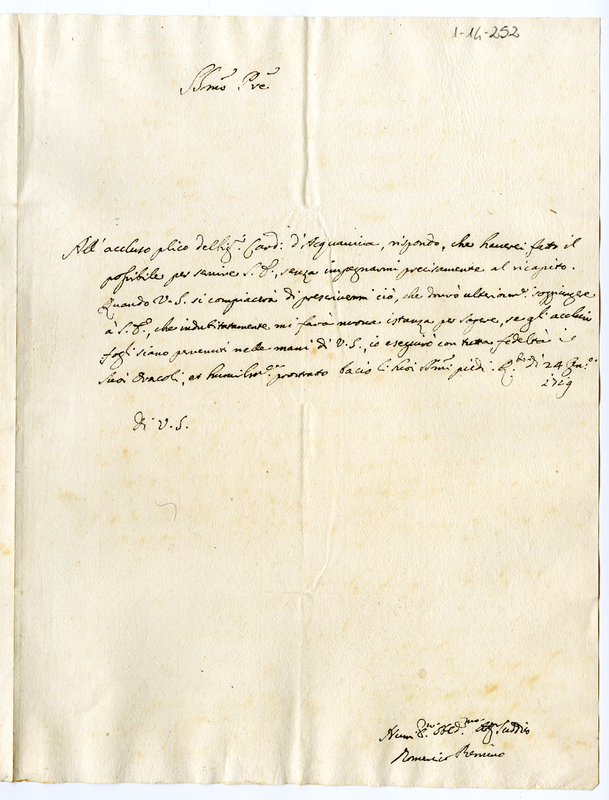 1-16-252
Bmo Pre
All'accluso plico del Sig.r Card: d'Acquaviva, rispondo, che haverei fatto il
possibile per servire S. E., senza impegnarmi precisamente al ricapito.
Quando V. S. si compiacerà di prescrivermi ciò, che dovrò ulteriorm.e soggiungere
à S. E., che indubitatamente mi farà nuova istanza per sapere, se gl'acclusi
fogli siano pervenuti nelle mani di V. S., io eseguirò con tutta fedeltà i
suoi Oracoli, et humilm.e prostrato bacio li suoi Bmi piedi. di 24 Gen.o
1729
Di V. S.
Hum. Obed.mo Suddito